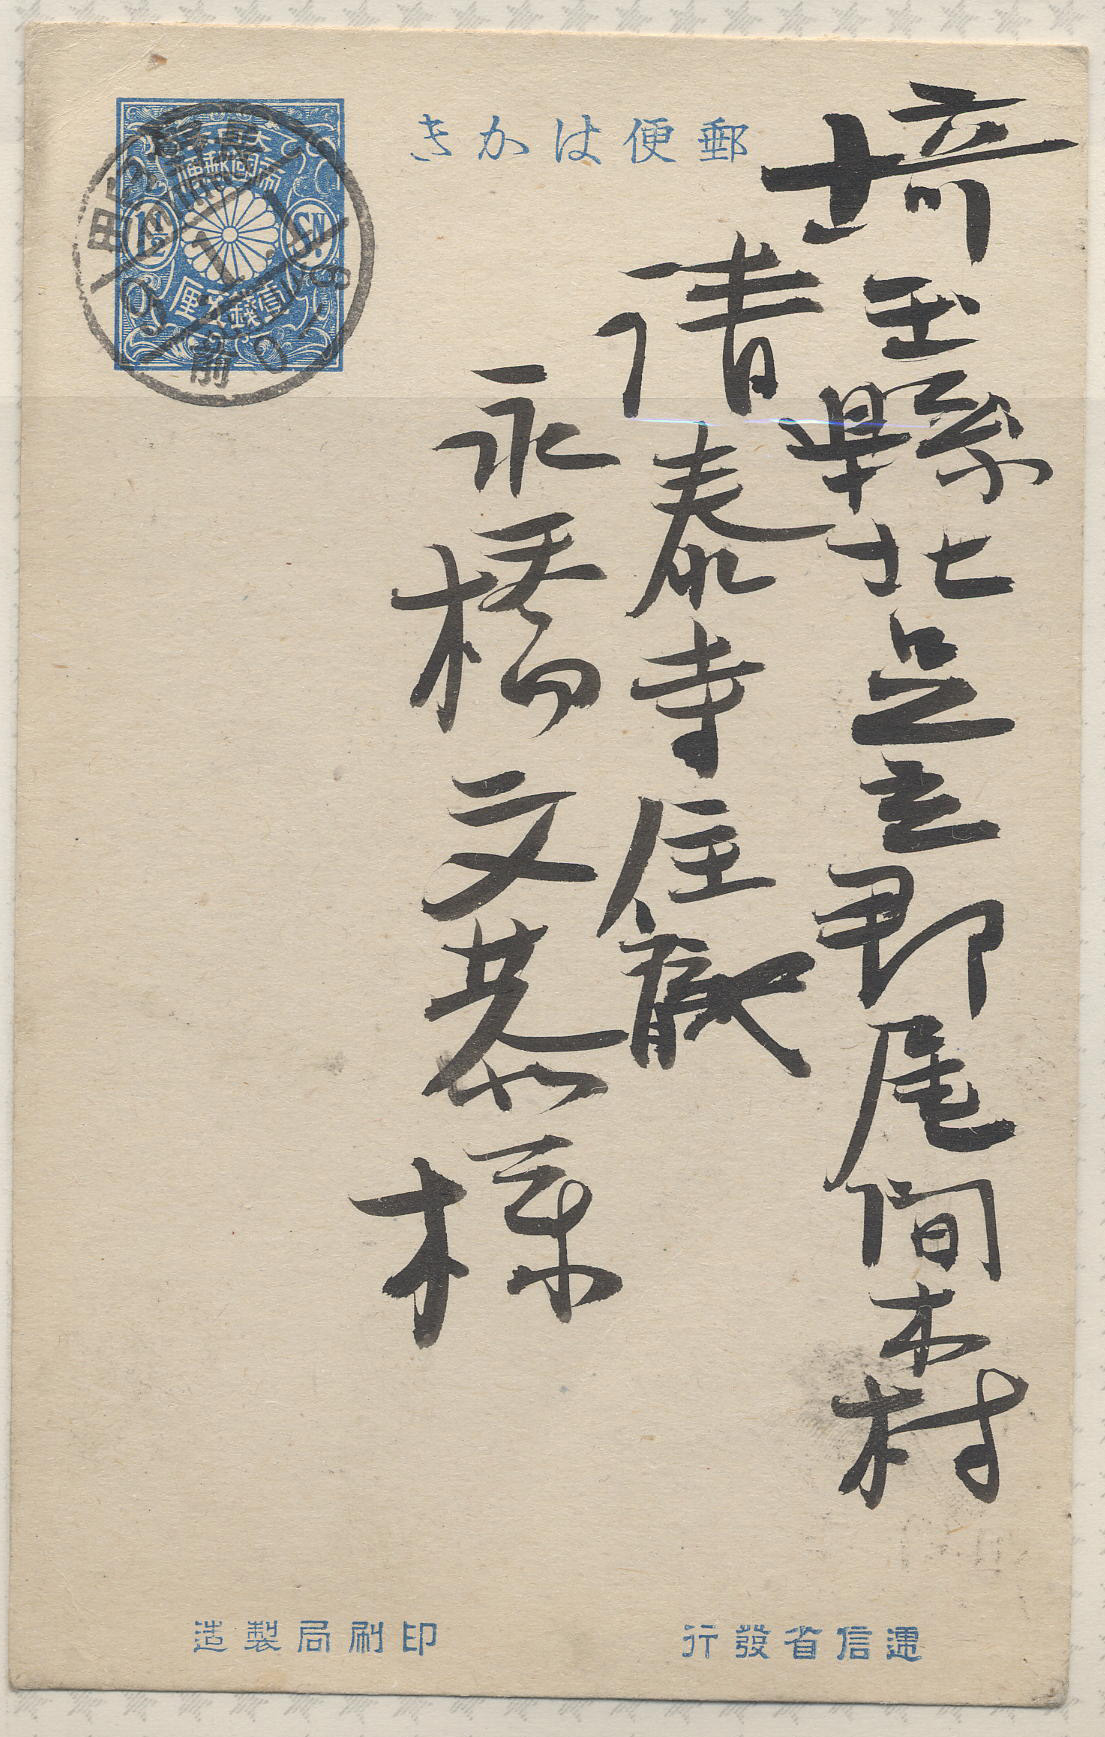 郵便はかき
大日本
帝國郵便
1½
SN
壹錢五厘
9.1.8
前
埼玉縣北足立郡尾間木村
清泰寺住職
永橋文恭様
逓信省發行
印刷局製造